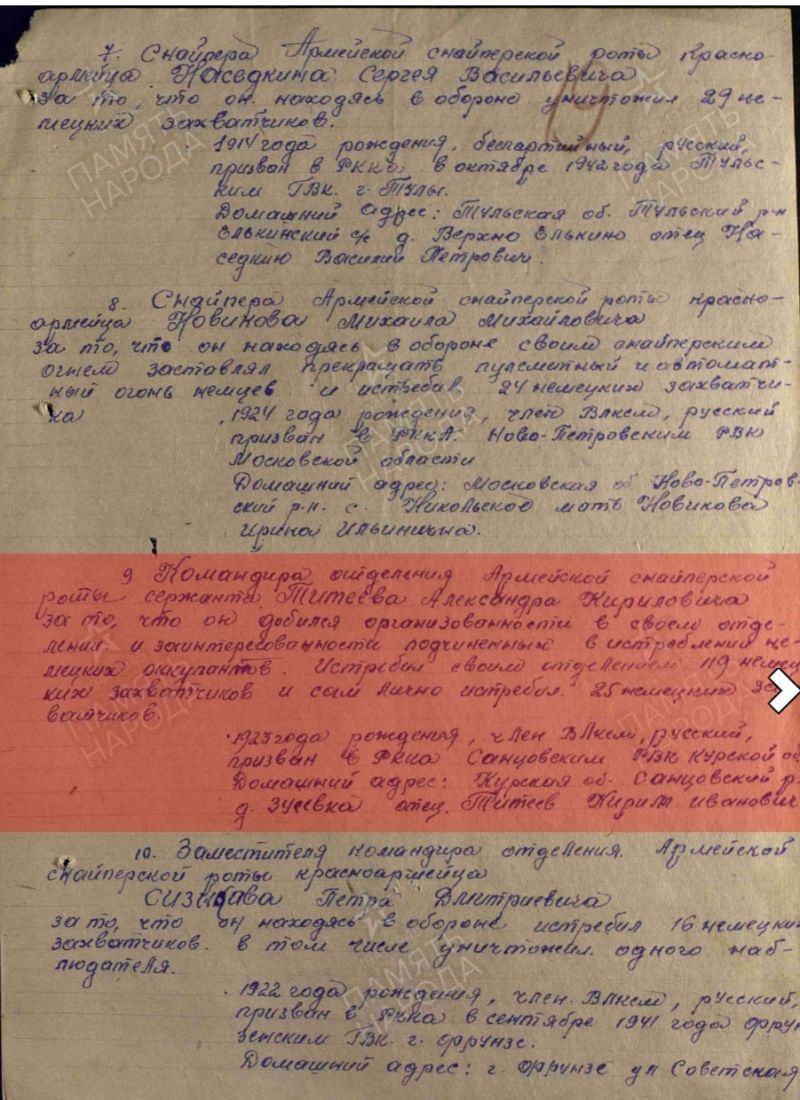 7. Снайпера Армейской снайперской роты красно-
армейца Наседкина Сергея Васильевича
за то, что он находясь в обороне уничтожил 29 не-
мецких захватчиков.
1914 года рождения, беспартийный, русский,
призван в РККА в октябре 1942 года Туль-
ским ГВК. г. Тулы.
Домашний адрес: Тульская об. Тульский р-н
Елькинский с/с д. Верхно Елькино отец На-
седкин Василий Петрович.
8. Снайпера Армейской снайперской роты красно-
армейца Новикова Михаила Михайловича
за то, что он находясь в обороне своим снайперским
огнем заставлял прекращать пулеметный и автомат-
ный огонь немцев и истребил 24 немецких захватчи-
ка
1924 года рождения, член ВЛКСМ, русский
призван в РККА. Ново-Петровским РВК
Московской области
Домашний адрес: Московская об Ново-Петров-
ский р-н. с. Никольское мать Новикова
Ирина Ильинична.
9 Командира отделения Армейской снайперской
роты сержанта Титеева Александра Кириловича
за то, что он добился организованности в своем отде-
лении и заинтересованности подчиненных в истреблении не-
мецких оккупантов. Истребил своим отделением 119 немец
ких захватчиков и сам лично истребил 25 немецких за
ватчиков.
1923 года рождения, член ВЛКСМ, русский,
призван в РККА Санцовским РВК Курской об
Домашний адрес: Курская об. Санцовский р.
д. Зуевка отец Титеев Кирилл Иванович
10. Заместителя командира отделения. Армейской
снайперской роты красноармейца
Петра Дмитриевича
за то, что он находясь в обороне истребил 16 немецки
захватчиков. в том числе уничтожил одного наб-
людателя.
1922 года рождения, член ВЛКСМ, русский,
призван в РККА в сентябре 1941 года Фрун
зенским ГВК. г. Фрунзе.
Домашний адрес: г. Фрунзе ул Советская
ПАМЯТЬ
НАРОДА